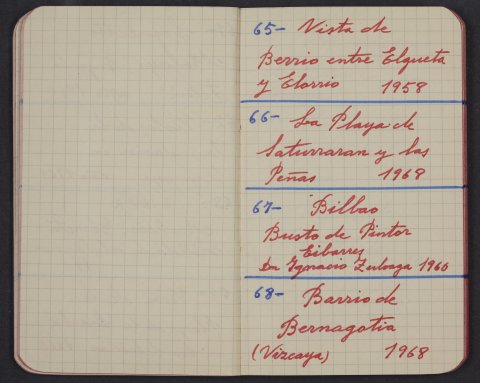 65- Vista de
Berrio entre Elgueta
y Elorrio 1958
66- La Playa de
Saturraran y las
Peñas 1968
67- Bilbao
Busto de Pintor
Eibarres
Dn Ignacio Zuloaga 1960
68- Barrio de
Bernagotia
(Vizcaya) 1968